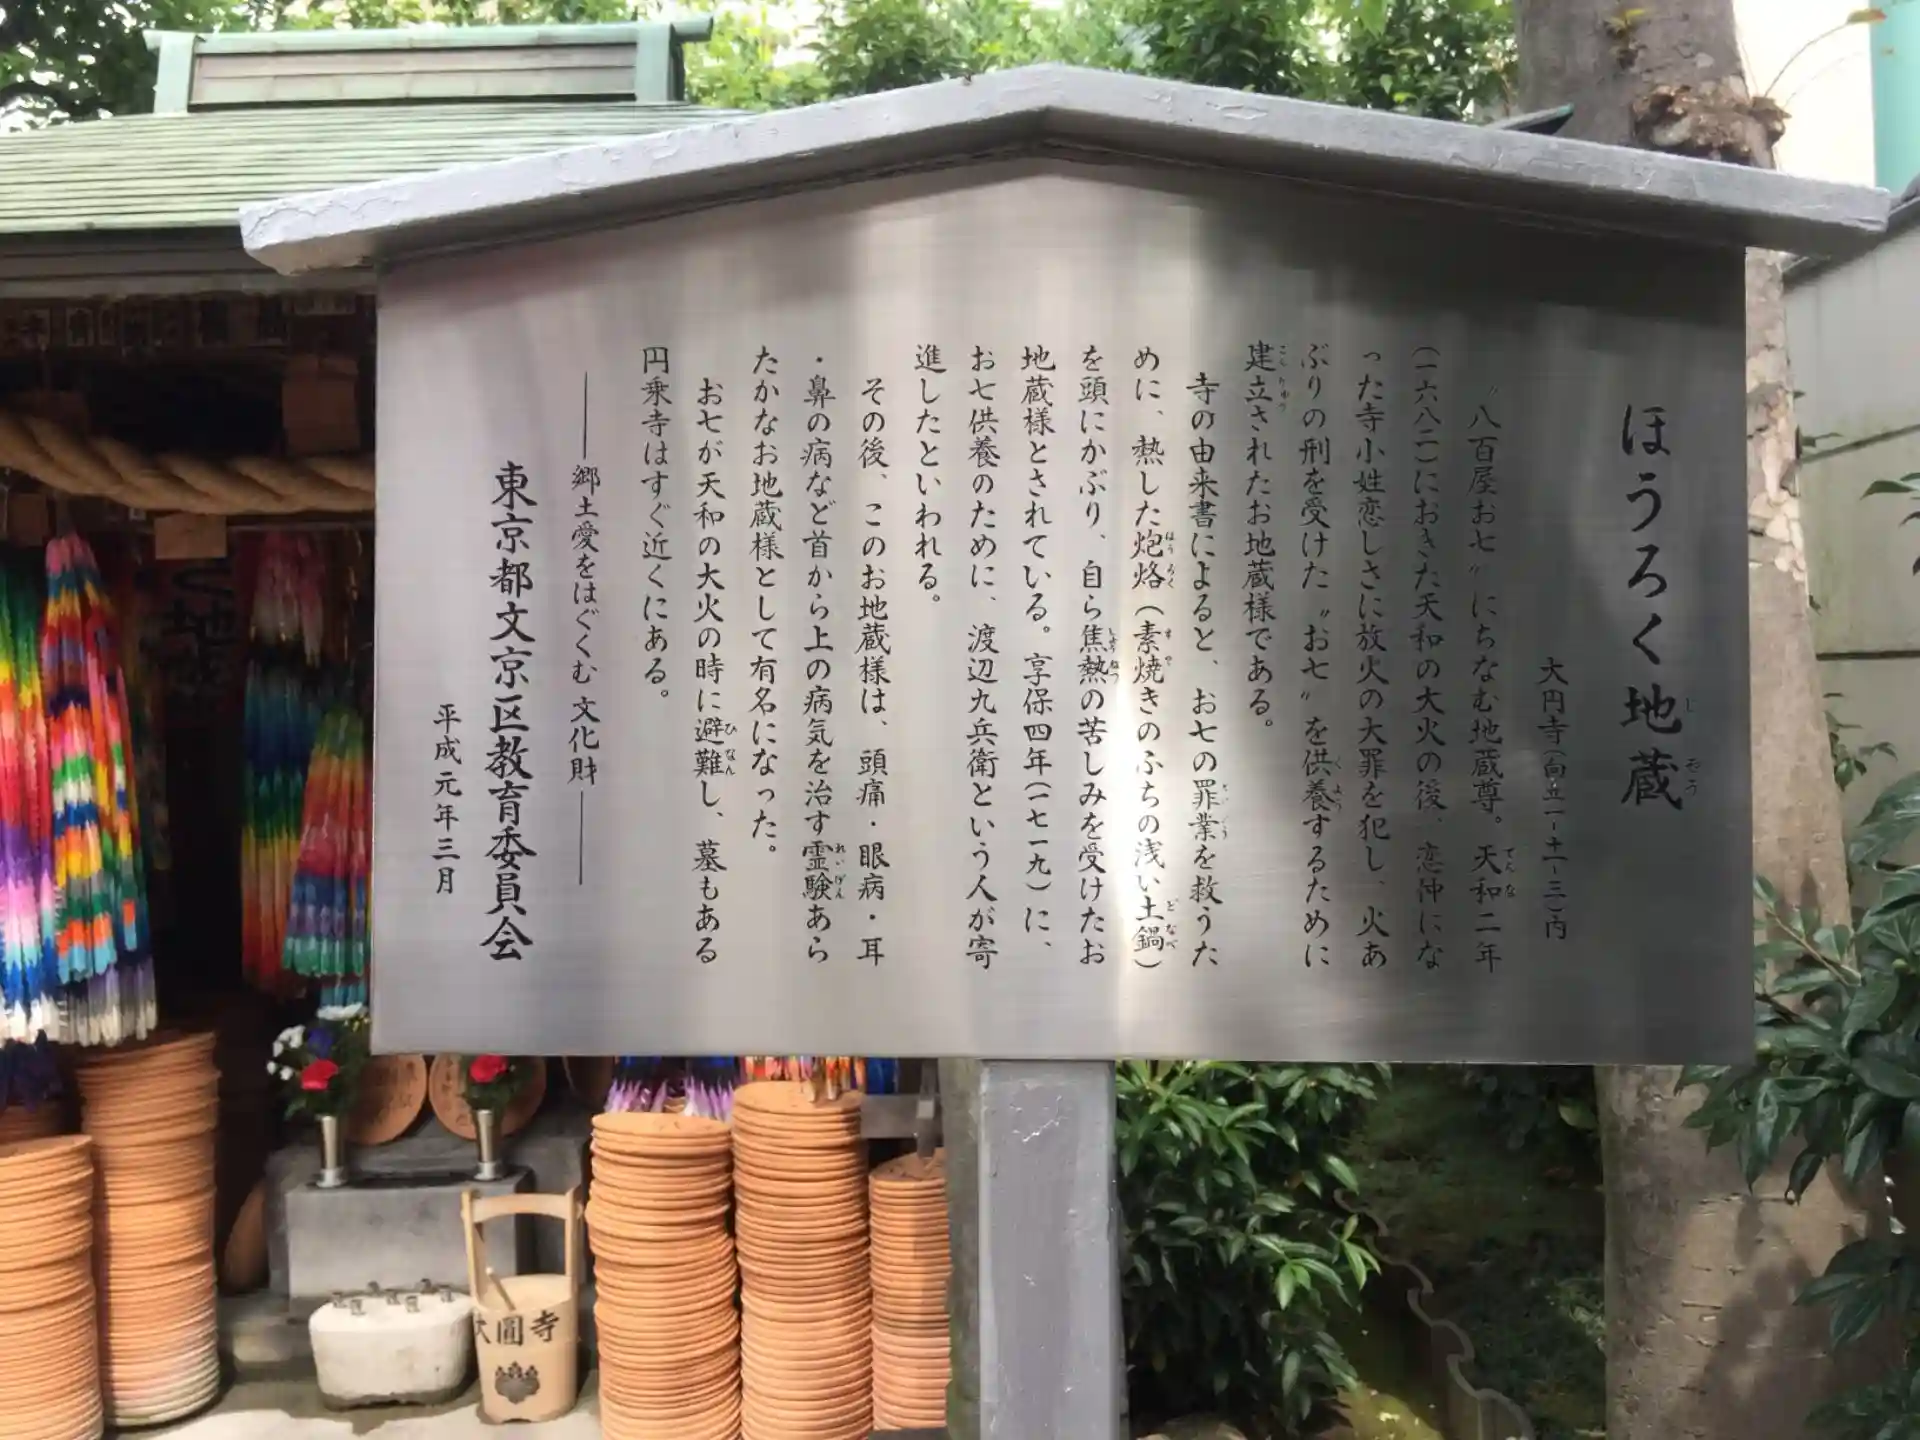 ほうろく地蔵
大円寺(向丘一-十一-三)内
〝八百屋お七〟にちなむ地蔵尊。天和二年
(一六八二)におきた天和の大火の後、恋仲にな
った寺小姓恋しさに放火の大罪を犯し、火あ
ぶりの刑を受けた〝お七〟を供養するために
建立されたお地蔵様である。
寺の由来書によると、お七の罪業を救うた
めに、熱した炮烙(素焼きのふちの浅い土鍋)
を頭にかぶり、自ら焦熱の苦しみを受けたお
地蔵様とされている。享保四年(一七一九)に、
お七供養のために、渡辺九兵衛という人が寄
進したといわれる。
その後、このお地蔵様は、頭痛・眼病・耳
・鼻の病など首から上の病気を治す霊験あら
たかなお地蔵様として有名になった。
お七が天和の大火の時に避難し、墓もある
円乗寺はすぐ近くにある。
――郷土愛をはぐくむ 文化財――
東京都文京区教育委員会
平成元年三月
大圓寺